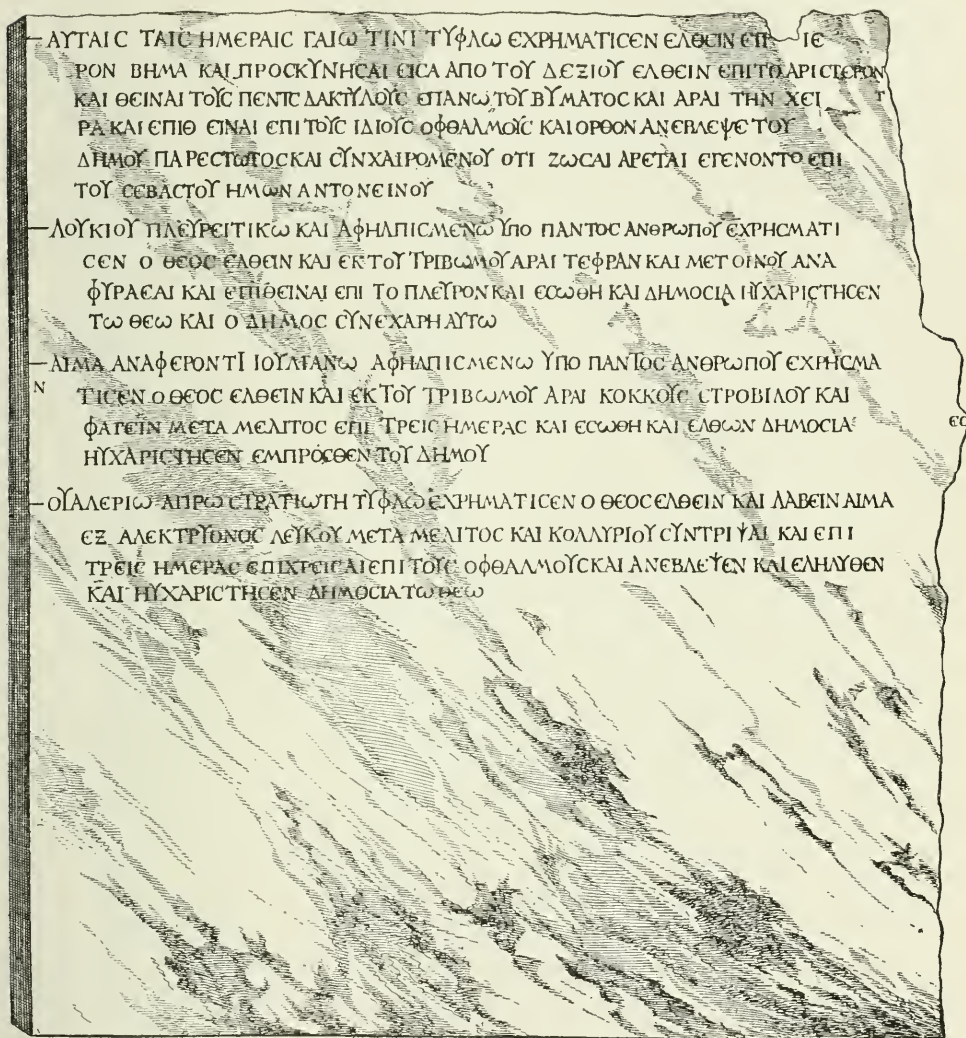 ΑΥΤΑΙϹ ΤΑΙϹ ΗΜΕΡΑΙϹ ΓΑΙω ΤΙΝΙ ΤΥΦΛω ΕΧΡΗΜΑΤΙϹΕΝ ΕΛΘΕΙΝ ΕΠ ΙΕ
ΡΟΝ ΒΗΜΑ ΚΑΙ ΠΡΟϹΚΥΝΗϹΑΙ ΕΙϹΑ ΑΠΟ ΤΟΥ ΔΕΞΙΟΥ ΕΛΘΕΙΝ ΕΠΙ ΤΟ ΑΡΙϹΤΕΡΟΝ
ΚΑΙ ΘΕΙΝΑΙ ΤΟΥϹ ΠΕΝΤϹ ΔΑΚΤΥΛΟΥϹ ΕΠΑΝω ΤΟΥ ΒΥΜΑΤΟϹ ΚΑΙ ΑΡΑΙ ΤΗΝ ΧΕΙ Τ
ΡΑ ΚΑΙ ΕΠΙΘ ΕΙΝΑΙ ΕΠΙ ΤΟΥϹ ΙΔΙΟΥϹ ΟΦΘΑΛΜΟΥϹ ΚΑΙ ΟΡΘΟΝ ΑΝΕΒΛΕΨΕ ΤΟΥ
ΔΗΜΟΥ ΠΑΡΕϹΤωΤΟϹ ΚΑΙ ϹΥΝΧΑΙΡΟΜΕΝΟΥ ΟΤΙ ΖωϹΑΙ ΑΡΕΤΑΙ ΕΓΕΝΟΝΤΟ ΕΠΙ
ΤΟΥ ϹΕΒΑϹΤΟΥ ΗΜωΝ ΑΝΤΟΝΕΙΝΟΥ
ΛΟΥΚΙΟΥ ΠΛΕΥΡΕΙΤΙΚω ΚΑΙ ΑΦΗΛΠΙϹΜΕΝω ΥΠΟ ΠΑΝΤΟϹ ΑΝΘΡωΠΟΥ ΕΧΡΗϹΜΑΤΙ
ϹΕΝ Ο ΘΕΟϹ ΕΛΘΕΙΝ ΚΑΙ ΕΚ ΤΟΥ ΤΡΙΒωΜΟΥ ΑΡΑΙ ΤΕΦΡΑΝ ΚΑΙ ΜΕΤ ΟΙΝΟΥ ΑΝΑ
ΦΥΡΑΕΑΙ ΚΑΙ ΕΠΙΘΕΙΝΑΙ ΕΠΙ ΤΟ ΠΛΕΥΡΟΝ ΚΑΙ ΕϹωΘΗ ΚΑΙ ΔΗΜΟϹΙΑ ΗΥΧΑΡΙϹΤΗϹΕΝ
Τω ΘΕω ΚΑΙ Ο ΔΗΜΟϹ ϹΥΝΕΧΑΡΗ ΑΥΤω
ΑΙΜΑ ΑΝΑΦΕΡΟΝΤΙ ΙΟΥΛΙΑΝω ΑΦΗΛΠΙϹΜΕΝω ΥΠΟ ΠΑΝΤΟϹ ΑΝΘΡωΠΟΥ ΕΧΡΗϹΜΑ
Ν ΤΙϹΕΝ Ο ΘΕΟϹ ΕΛΘΕΙΝ ΚΑΙ ΕΚ ΤΟΥ ΤΡΙΒωΜΟΥ ΑΡΑΙ ΚΟΚΚΟΥϹ ϹΤΡΟΒΙΛΟΥ ΚΑΙ
ΦΑΓΕΙΝ ΜΕΤΑ ΜΕΛΙΤΟϹ ΕΠΙ ΤΡΕΙϹ ΗΜΕΡΑϹ ΚΑΙ ΕϹωΘΗ ΚΑΙ ΕΛΘωΝ ΔΗΜΟϹΙΑ ΕϹ
ΗΥΧΑΡΙϹΤΗϹΕΝ ΕΜΠΡΟϹΘΕΝ ΤΟΥ ΔΗΜΟΥ
ΟΥΑΛΕΡΙω ΑΠΡω ϹΤΡΑΤΙωΤΗ ΤΥΦΛω ΕΧΡΗΜΑΤΙϹΕΝ Ο ΘΕΟϹ ΕΛΘΕΙΝ ΚΑΙ ΛΑΒΕΙΝ ΑΙΜΑ
ΕΞ ΑΛΕΚΤΡΥΟΝΟϹ ΛΕΥΚΟΥ ΜΕΤΑ ΜΕΛΙΤΟϹ ΚΑΙ ΚΟΛΛΥΡΙΟΥ ϹΥΝΤΡΙΨΑΙ ΚΑΙ ΕΠΙ
ΤΡΕΙϹ ΗΜΕΡΑϹ ΕΠΙΧΡΕΙϹΑΙ ΕΠΙ ΤΟΥϹ ΟΦΘΑΛΜΟΥϹ ΚΑΙ ΑΝΕΒΛΕΨΕΝ ΚΑΙ ΕΛΗΛΥΘΕΝ
ΚΑΙ ΗΥΧΑΡΙϹΤΗϹΕΝ ΔΗΜΟϹΙΑ Τω ΘΕω